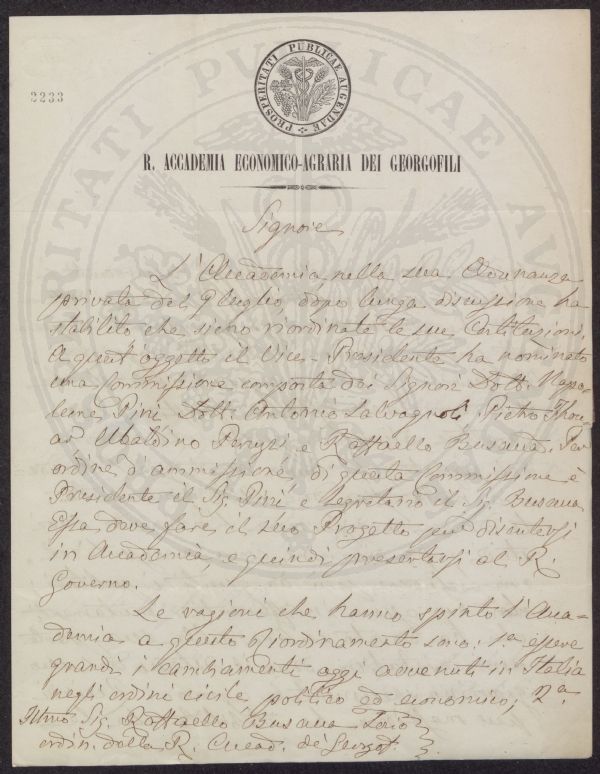 PROSPERITATI PUBLICAE AUGENDAE
2233
R. ACCADEMIA ECONOMICO-AGRARIA DEI GEORGOFILI
Signore
L'Accademia nella sua Adunanza
privata del 9 luglio dopo lunga discussione ha
stabilito che sieno riordinate le sue Costituzioni.
A quest'oggetto il Vice-Presidente ha nominato
una Commissione composta dei Signori Dott. Napo=
leone Pini Dott. Antonio Salvagnoli Pietro Thou=
ar Ubaldino Peruzzi e Raffaello Busacca. Per
ordine d'ammissione di questa Commissione è
Presidente il Sig. Pini e Segretario il Sig. Busacca
Essa deve fare il suo Progetto per discutersi
in Accademia, e quindi presentarsi al R.
Governo.
Le ragioni che hanno spinto l'Acca=
demia a questo Riordinamento sono: 1.a essere
grandi i cambiamenti oggi avvenuti in Italia
negli ordini civile politico ed economico; 2.a
Illmo Sig. Raffaello Busacca Socio
ordin. della R. Accad. de' Georgof.